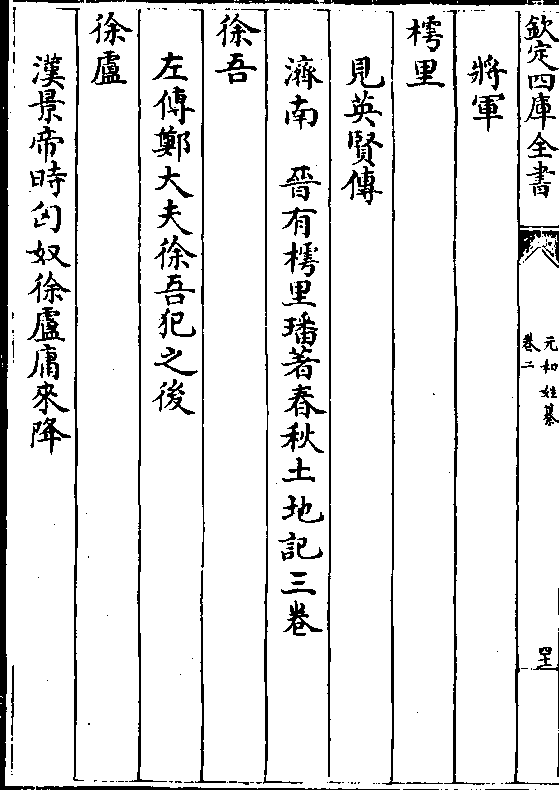 欽定四庫全書
元和姓纂
卷二
將軍
樗里
見英賢傳
濟南　晉有樗里璠著春秋土地記三卷
徐吾
左傳鄭大夫徐吾犯之後
徐盧
漢景帝時匈奴徐盧庸來降